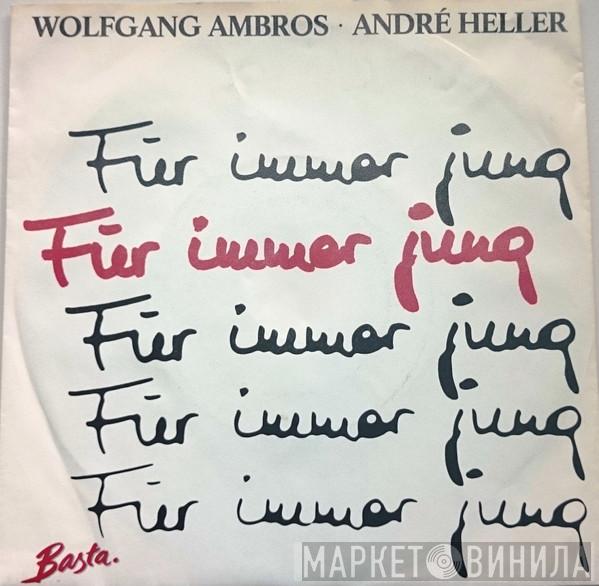 WOLFGANG AMBROS · ANDRÉ HELLER
Für immer jung
Für immer jung
Für immer jung
Für immer jung
Für immer jung
Basta.
МАРКЕТ ВИНИЛА